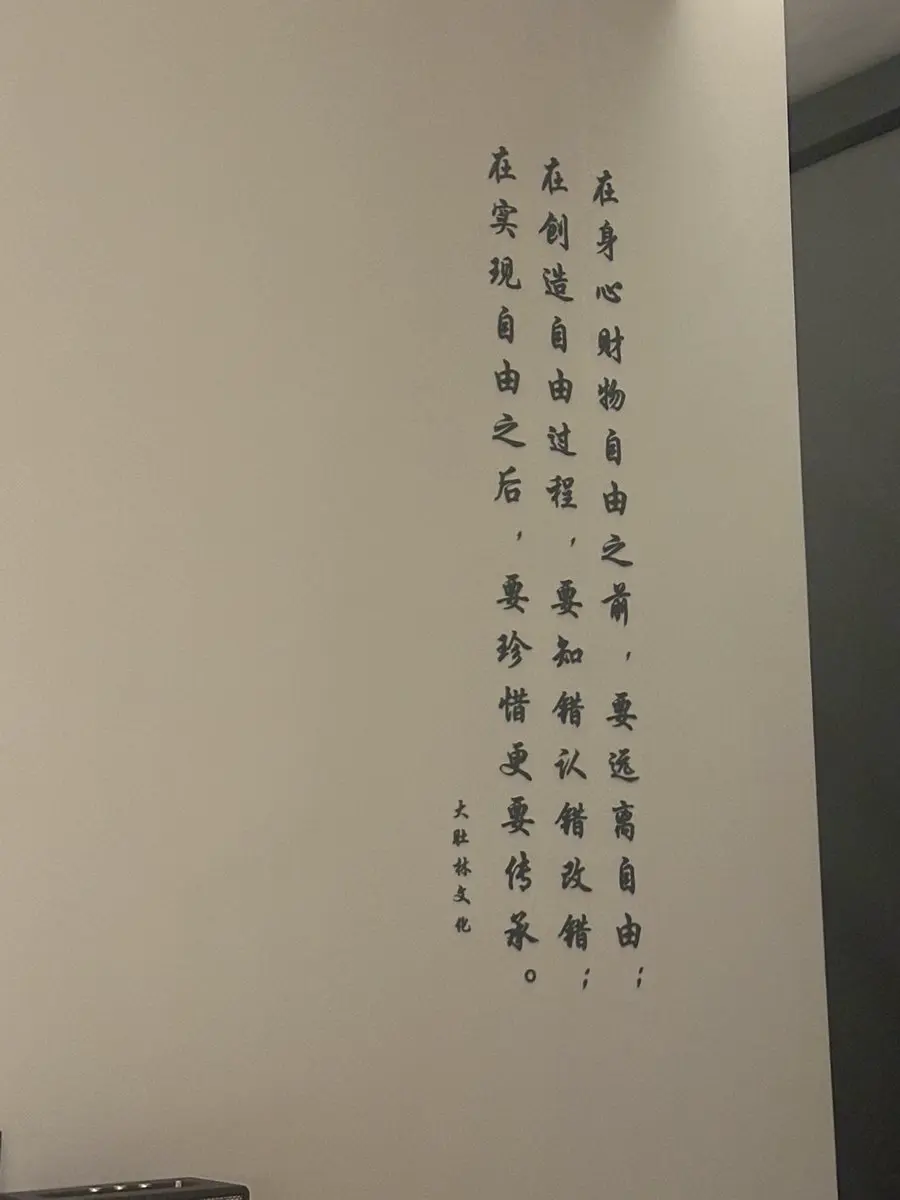 在身心财物自由之前，要远离自由；
在创造自由过程，要知错认错改错；
在实现自由之后，要珍惜更要传承。
大肚林文化